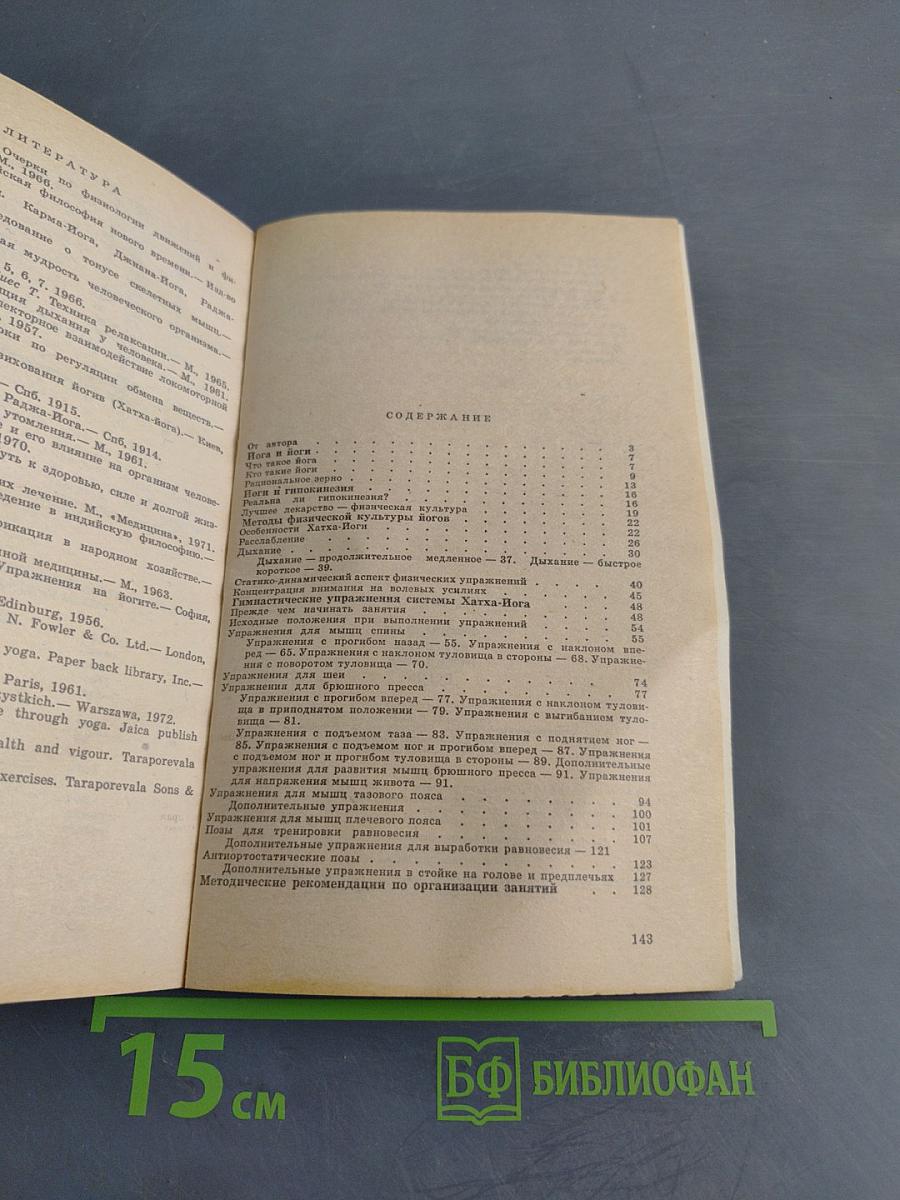 ЛИТЕРАТУРА
Очерки по физиологии движений и фи-
М., 1966.
йская философия нового времени.— Изд-во
Карма-Йога, Джнана-Йога, Раджа-
едование о тонусе скелетных мышц.—
ая мудрость человеческого организма.—
5, 6, 7. 1966.
шес Т. Техника релаксации.— М., 1965.
ция дыхания у человека.— М., 1961.
лекторное взаимодействие локомоторной
1957.
рки по регуляции обмена веществ.—
виховання йогив (Хатха-йога).— Киев,
— Спб. 1915.
Раджа-Йога.— Спб, 1914.
утомления.— М., 1961.
е и его влияние на организм челове-
1970.
уть к здоровью, силе и долгой жиз-
их лечение. М., «Медицина», 1971.
едение в индийскую философию.—
рикация в народном хозяйстве.—
нной медицины.— М., 1963.
Упражнения на йогите.— София,
Edinburg, 1956.
N. Fowler & Co. Ltd.— London,
yoga. Paper back library, Inc.—
Paris, 1961.
zystkich.— Warszawa, 1972.
e through yoga. Jaica publish
alth and vigour. Taraporevala
exercises. Taraporevala Sons &
СОДЕРЖАНИЕ
От автора . . . . . . . . . . . . 3
Йога и йоги . . . . . . . . . . . . 7
Что такое йога . . . . . . . . . . . . 7
Кто такие йоги . . . . . . . . . . . . 9
Рациональное зерно . . . . . . . . . . . . 13
Йоги и гипокинезия . . . . . . . . . . . . 16
Реальна ли гипокинезия? . . . . . . . . . . . . 16
Лучшее лекарство — физическая культура . . . . . . . . 19
Методы физической культуры йогов . . . . . . . . 22
Особенности Хатха-Йоги . . . . . . . . . . 22
Расслабление . . . . . . . . . . . . 26
Дыхание . . . . . . . . . . . . 30
Дыхание — продолжительное медленное — 37. Дыхание — быстрое
короткое — 39.
Статико-динамический аспект физических упражнений . . . . 40
Концентрация внимания на волевых усилиях . . . . . . 45
Гимнастические упражнения системы Хатха-Йога 48
Прежде чем начинать занятия . . . . . . . . 48
Исходные положения при выполнении упражнений . . . . 54
Упражнения для мышц спины . . . . . . . . 55
Упражнения с прогибом назад — 55. Упражнения с наклоном впе-
ред — 65. Упражнения с наклоном туловища в стороны — 68. Упражне-
ния с поворотом туловища — 70.
Упражнения для шеи . . . . . . . . . . 74
Упражнения для брюшного пресса . . . . . . . . 77
Упражнения с прогибом вперед — 77. Упражнения с наклоном тулови-
ща в приподнятом положении — 79. Упражнения с выгибанием туло-
вища — 81.
Упражнения с подъемом таза — 83. Упражнения с поднятием ног —
85. Упражнения с подъемом ног и прогибом вперед — 87. Упражнения
с подъемом ног и прогибом туловища в стороны — 89. Дополнительные
упражнения для развития мышц брюшного пресса — 91. Упражнения
для напряжения мышц живота — 91.
Упражнения для мышц тазового пояса . . . . . . . 94
Дополнительные упражнения . . . . . . . . 100
Упражнения для мышц плечевого пояса . . . . . . . 101
Позы для тренировки равновесия . . . . . . . . 107
Дополнительные упражнения для выработки равновесия — 121
Антиортостатические позы . . . . . . . . . . 123
Дополнительные упражнения в стойке на голове и предплечьях 127
Методические рекомендации по организации занятий . . 128
143
15 см
БФ БИБЛИОФАН